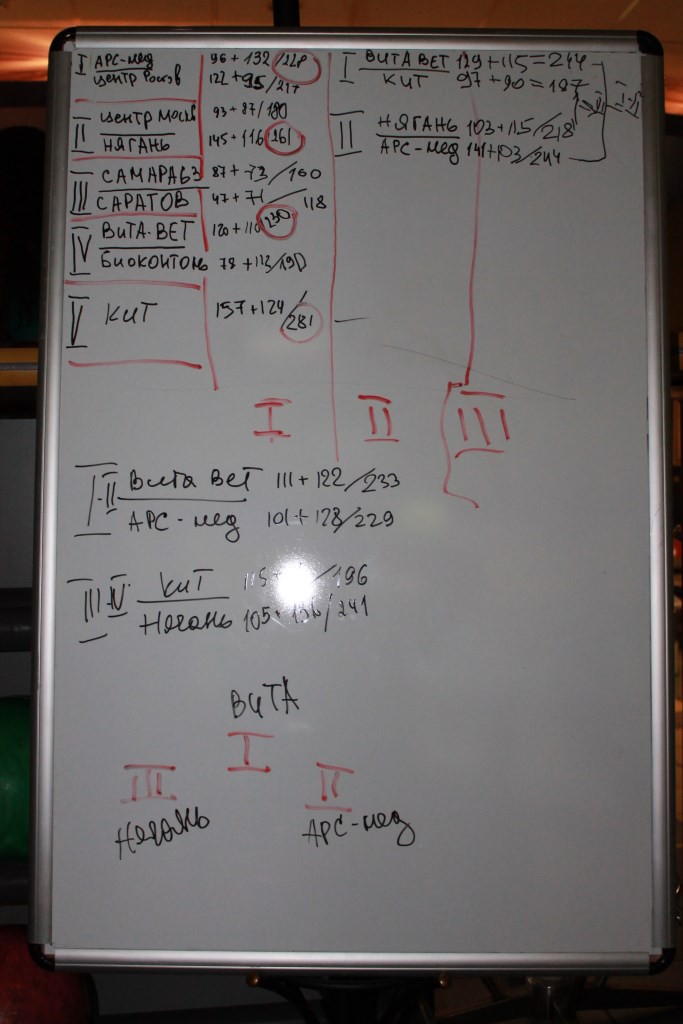 I АРС-мед 96 + 132 / 228
центр Росков 122 + 95 / 217
II центр моск 93 + 87 / 180
НЯГАНЬ 145 + 116 261
III САМАРА63 87 + 73 / 160
САРАТОВ 47 + 71 / 118
IV ВИТА-ВЕТ 120 + 110 230
БИОКОНТОНЬ 78 + 113 / 190
V КИТ 157 + 124 / 281
I ВИТА ВЕТ 129 + 115 = 244
КИТ 97 + 90 = 187
II НЯГАНЬ 103 + 115 / 218
АРС-МЕД 141 + 103 / 244
I II III
I-II ВИТА ВЕТ 111 + 122 / 233
АРС-мед 101 + 128 / 229
III-IV КИТ 115 + / 196
НЯГАНЬ 105 + 136 / 241
ВИТА
I
III II
НЯГАНЬ АРС-мед